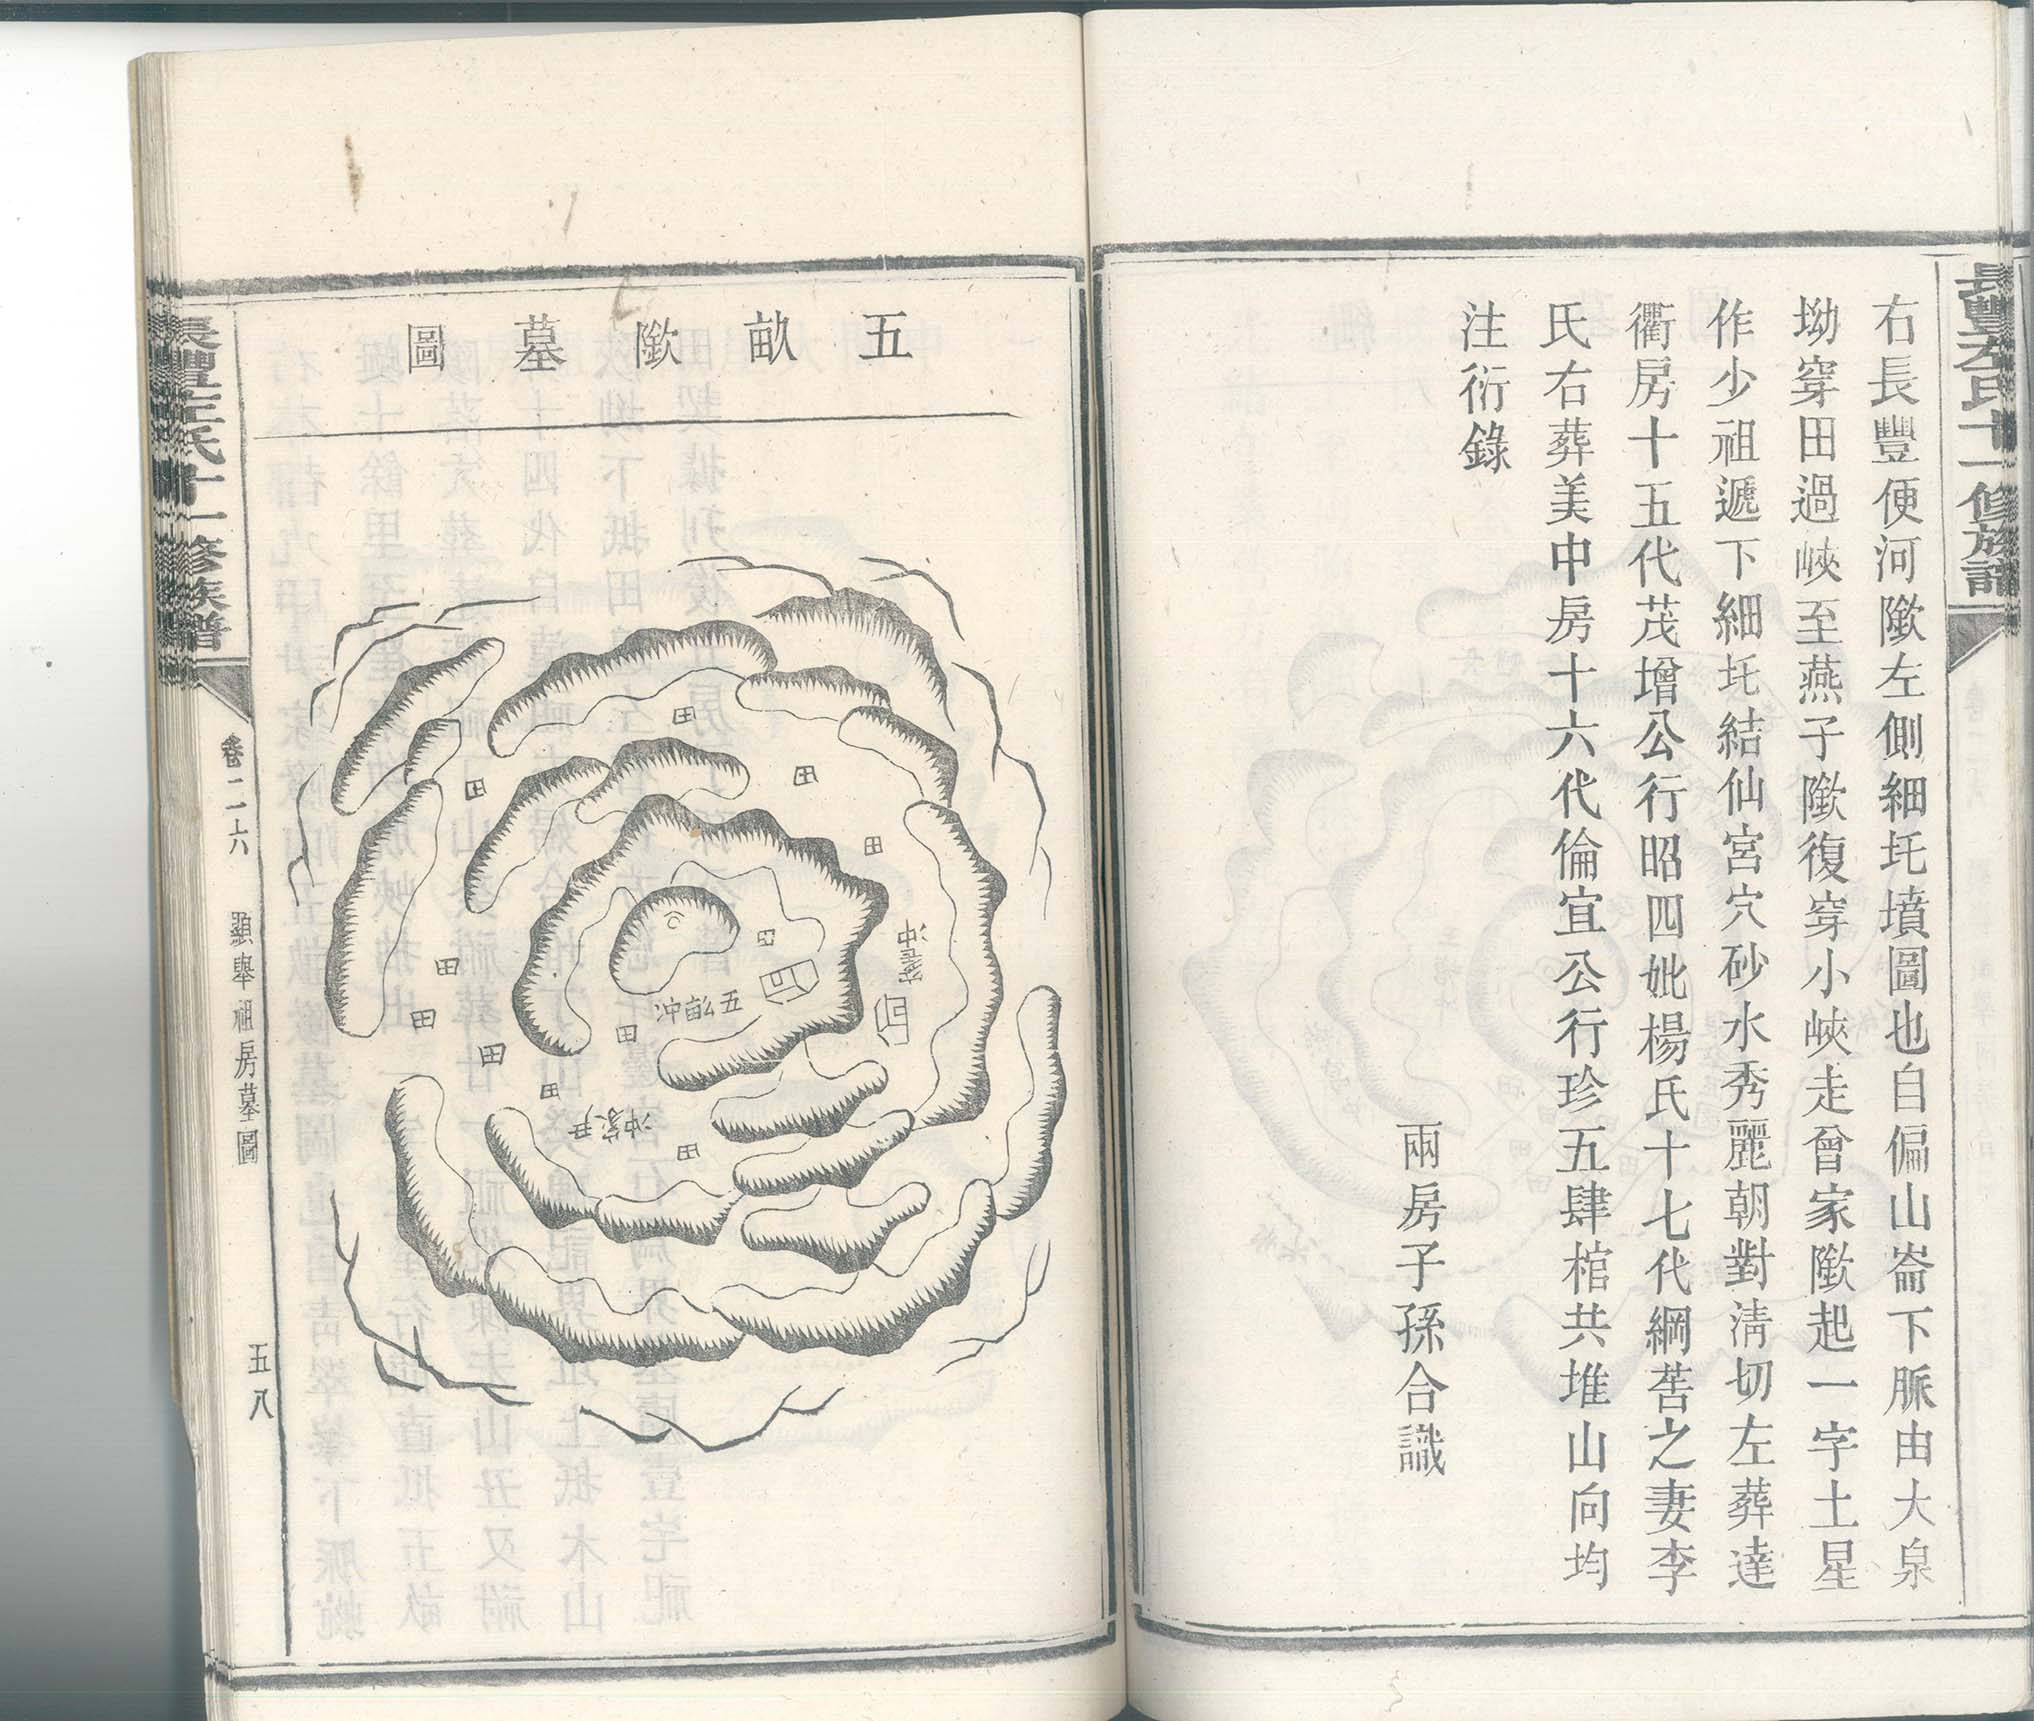 長豐左氏十一修族譜
右長豐便河隞左側細圫墳圖也自偏山崙下脈由大泉
坳穿田過峽至燕子隞復穿小峽走曾家隞起一字土星
作少祖遞下細圫結仙宮穴砂水秀麗朝對淸切左葬達
衢房十五代茂增公行昭四妣楊氏十七代綱莟之妻李
氏右葬美中房十六代倫宜公行珍五肆棺共堆山向均
注衍錄
兩房子孫合識
五畝隞墓圖
田
田
田
田
田
田
田
田
田
田
田
五畝冲
尹家冲
冲
長豐左氏十一修族譜
卷二六
顯舉祖房墓圖
五八